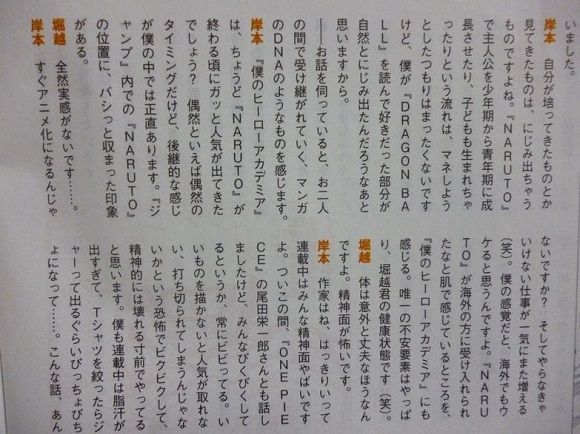 いました。
岸本　自分が培ってきたものとか
見てきたものは、にじみ出ちゃう
ものですよね。『NARUTO』
で主人公を少年期から青年期に成
長させたり、子どもも生まれちゃ
ったりという流れは、マネしよう
としたつもりはまったくないです
けど、僕が『DRAGON BA
LL』を読んで好きだった部分が
自然とにじみ出たんだろうなあと
思いますから。
――お話を伺っていると、お二人
の間で受け継がれていく、マンガ
のDNAのようなものを感じます。
岸本　『僕のヒーローアカデミア』
は、ちょうど『NARUTO』が
終わる頃にガッと人気が出てきた
でしょう？　偶然といえば偶然の
タイミングだけど、後継的な感じ
が僕の中では正直あります。『ジ
ャンプ』内での『NARUTO』
の位置に、バシっと収まった印象
がある。
堀越　全然実感がないです……。
岸本　すぐアニメ化になるんじゃ
ないですか？　そしてやらなきゃ
いけない仕事が一気にまた増える
（笑）。僕の感覚だと、海外でもウ
ケると思うんですよ。『NARU
TO』が海外の方に受け入れられ
たなと肌で感じているところを、
『僕のヒーローアカデミア』にも
感じる。唯一の不安要素はやっぱ
り、堀越君の健康状態です（笑）。
堀越　体は意外と丈夫なほうなん
ですよ。精神面が怖いです。
岸本　作家はね、はっきりいって
連載中はみんな精神面やばいです
よ。ついこの間、『ONE PIE
CE』の尾田栄一郎さんとも話し
ましたけど、みんなびくびくして
るというか、常にビビッてる。い
いものを描かないと人気が取れな
い、打ち切られてしまうんじゃな
いかという恐怖でビクビクして、
精神的には壊れる寸前でやってる
と思います。僕も連載中は脂汗が
出すぎて、Tシャツを絞ったらジ
ャーって出るぐらいびっちょびち
ょになって……。こんな話、あん